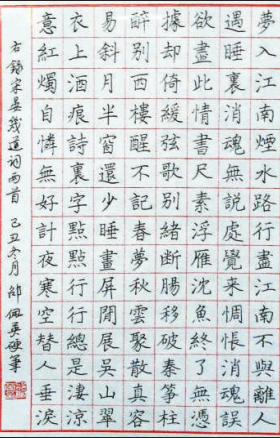 夢入江南煙水路行盡江南不與離人
遇睡裏消魂無說處覺來惆悵消魂誤
欲盡此情書尺素浮雁沈魚終了無憑
據却倚緩弦歌別緒斷腸移破秦箏柱
醉別西樓醒不記春夢秋雲聚散真容
易斜月半窗還少睡畫屏閒展吳山翠
衣上酒痕詩裏字點點行行總是淒涼
意紅燭自憐無好計夜寒空替人垂淚
右錄宋晏幾道詞兩首 己丑冬月 硬筆